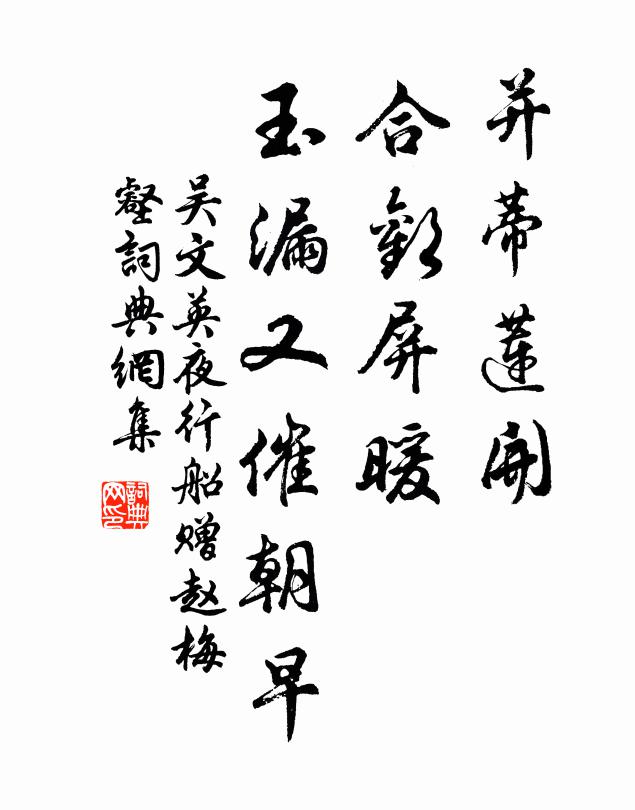 并蒂莲開
合歡屏暖
玉漏又催朝早
吴文英夜行船赠赵梅
壑詞典網集
詞典
网印